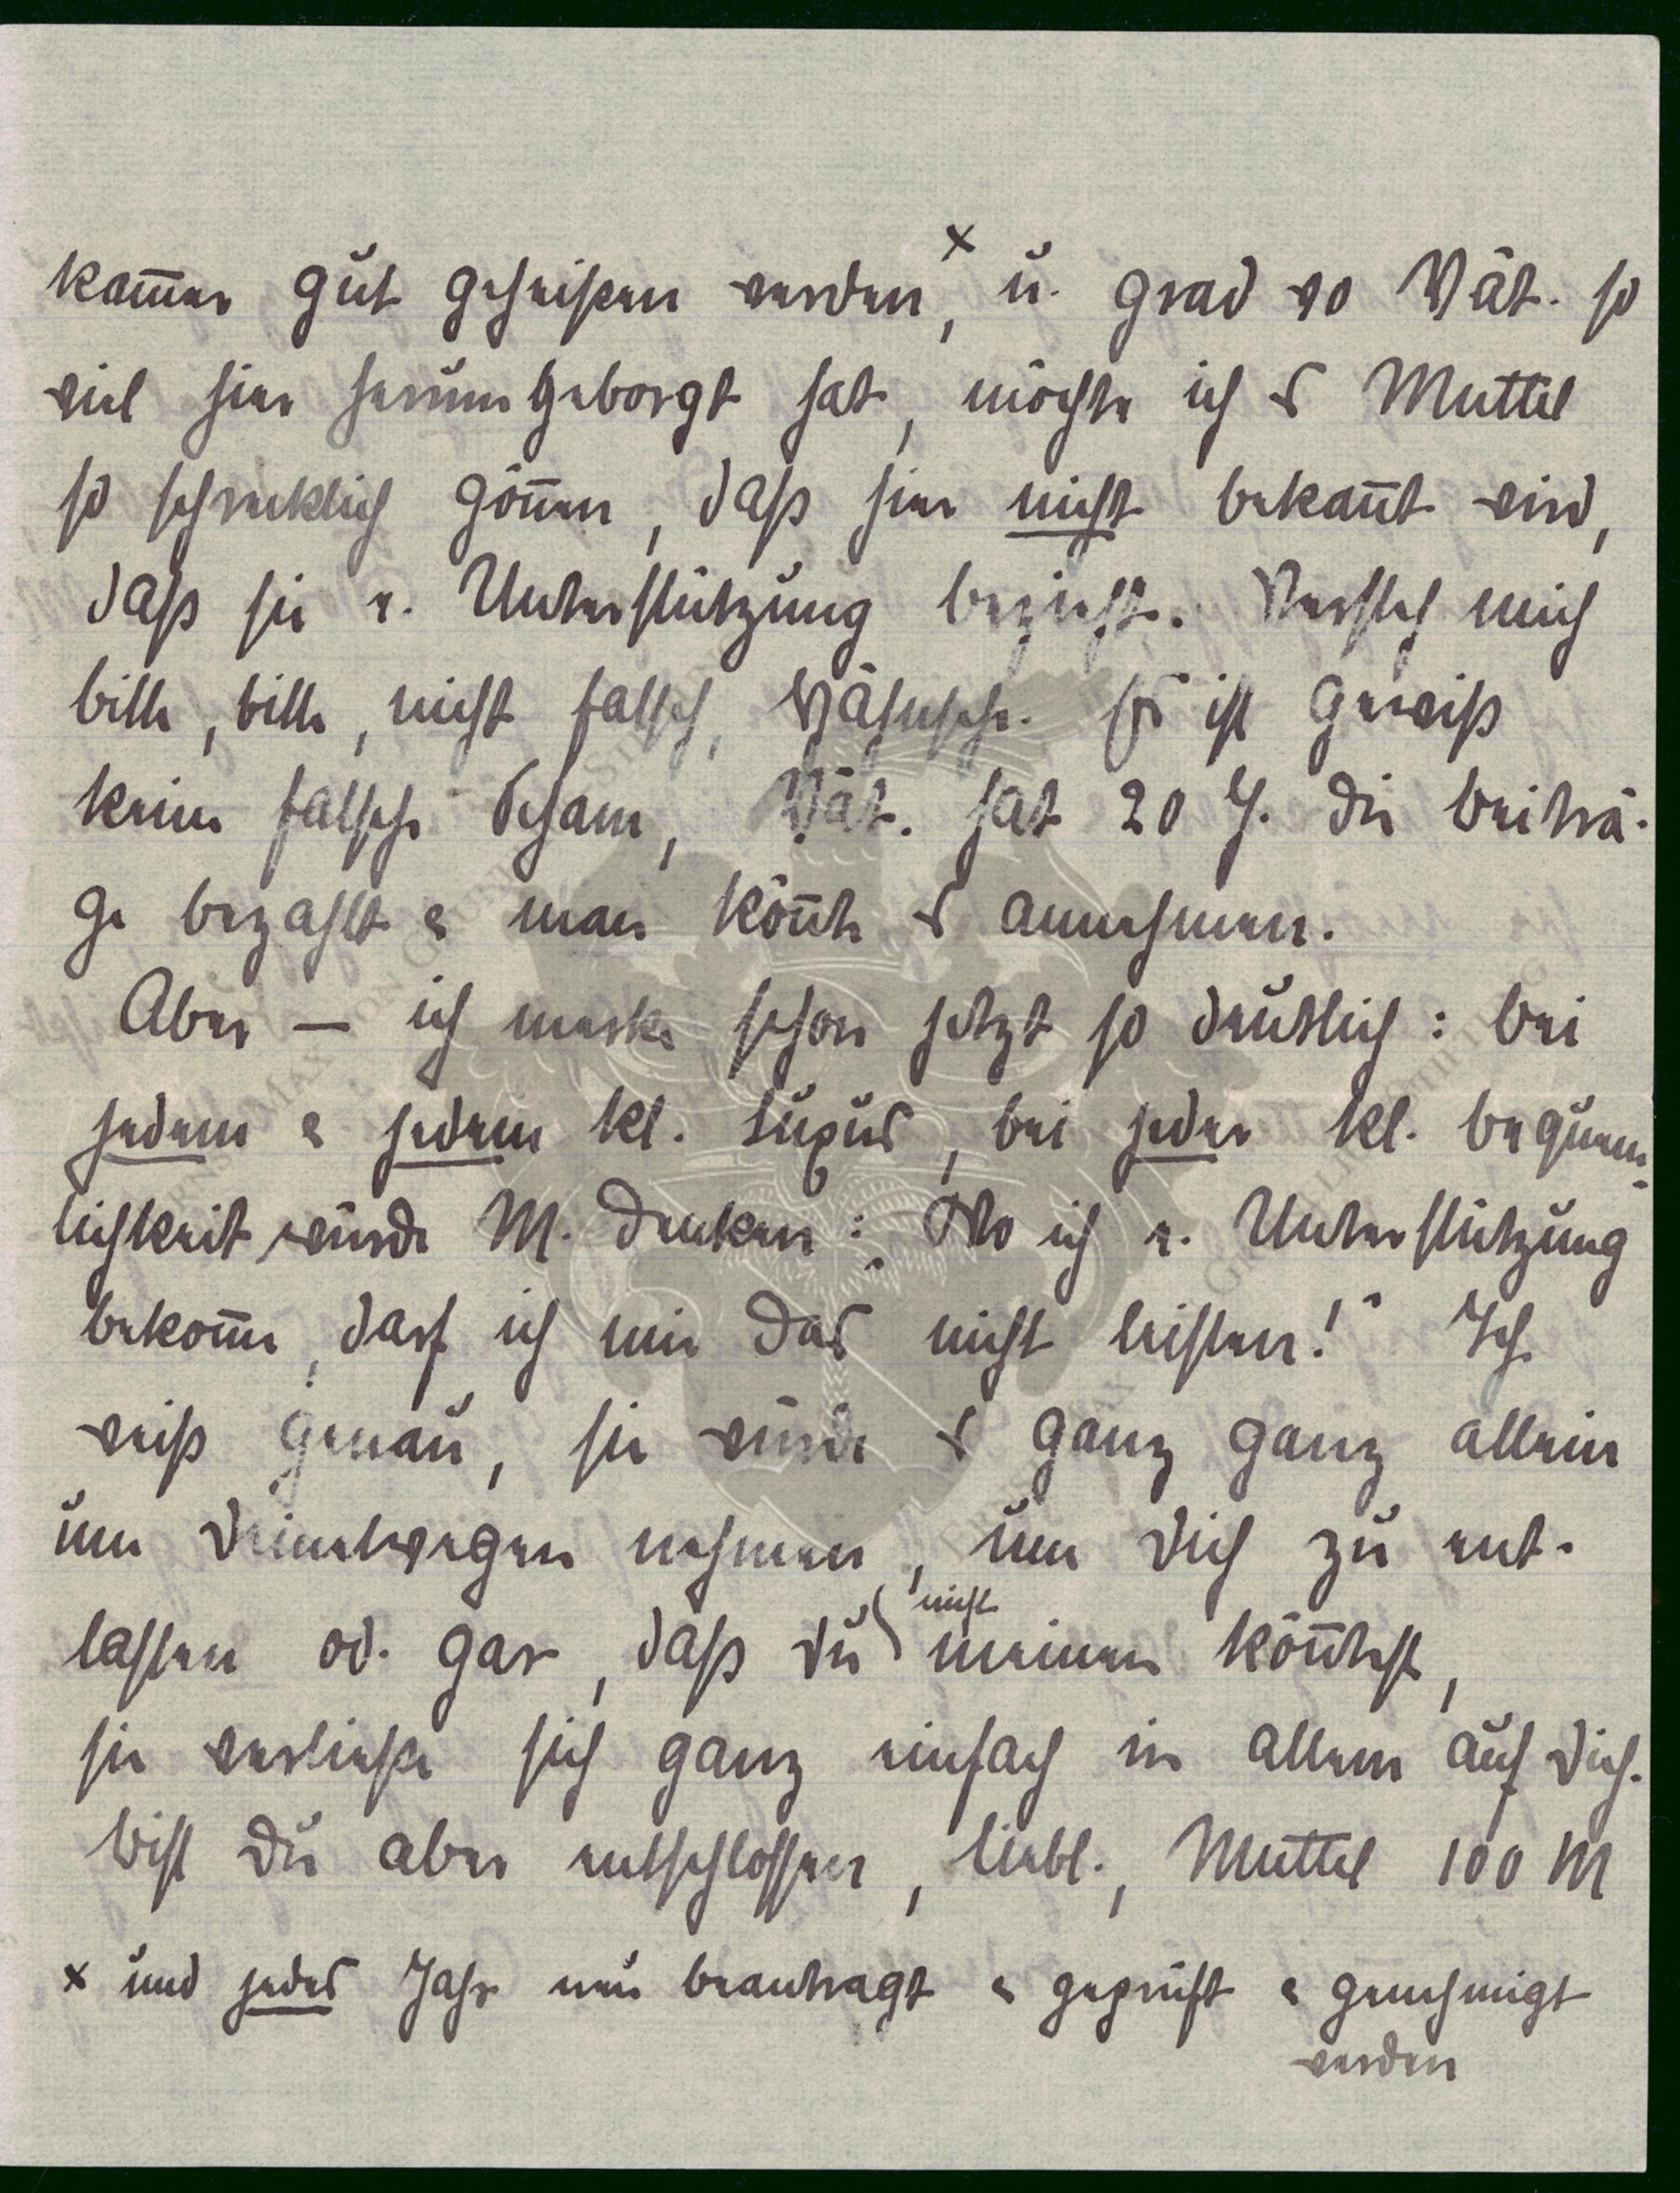 kam̄er gut geheißen werden,ˣ u. grad wo Vät. so
viel hier herum geborgt hat, möchte ich es Muttel
so schrecklich gön̄en, daß hier nicht bekan̄t wird,
daß sie e. Unterstützung bezieht. Versteh mich
bitte, bitte, nicht falsch, . Es ist gewiß
keine falsche Scham, Vät. hat 20 J. die Beiträ-
ge bezahlt & man kön̄te es annehmen.
Aber — ich merke schon jetzt so deutlich: bei
jedem & jedem kl. Luxus, bei jeder kl. Bequem-
lichkeit würde M. denken: „Wo ich e. Unterstützung
bekom̄e, darf ich mir das nicht leisten!“ Ich
weiß genau, sie würde es ganz ganz allein
um Deinetwegen nehmen, um Dich zu ent-
lasten od. gar, daß Du nicht meinen kön̄test,
sie verließe sich ganz einfach in allem auf Dich.
Bist Du aber entschlossen, Liebl., Muttel 100 M
x und jedes Jahr neu beantragt & geprüft & genehmigt
werden